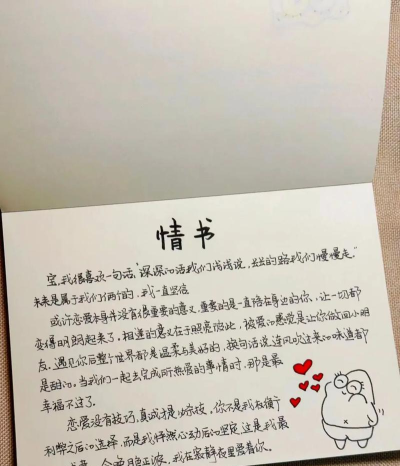 情书
宝,我很喜欢一句话,"深深的话我们浅浅说,长长的路我们慢慢走。"
未来是属于我们俩个的,我一直坚信
或许恋爱本身并没有很重要的意义,重要的是一直陪在身边的你,让一切都
变得明朗起来了。相逢的意义在于照亮彼此,被爱的感觉是让你做回小朋
友。遇见你后整个世界都是温柔与美好的,换句话说连风吹过来的味道都
是甜的,当我们一起去完成所热爱的事情时,那是最
幸福不过了。
恋爱没有技巧,真诚才是必杀技,你不是我权衡了
利弊之后的选择,而是我怦然心动后的坚定,这是我最
我在寂静夜里爱着你。